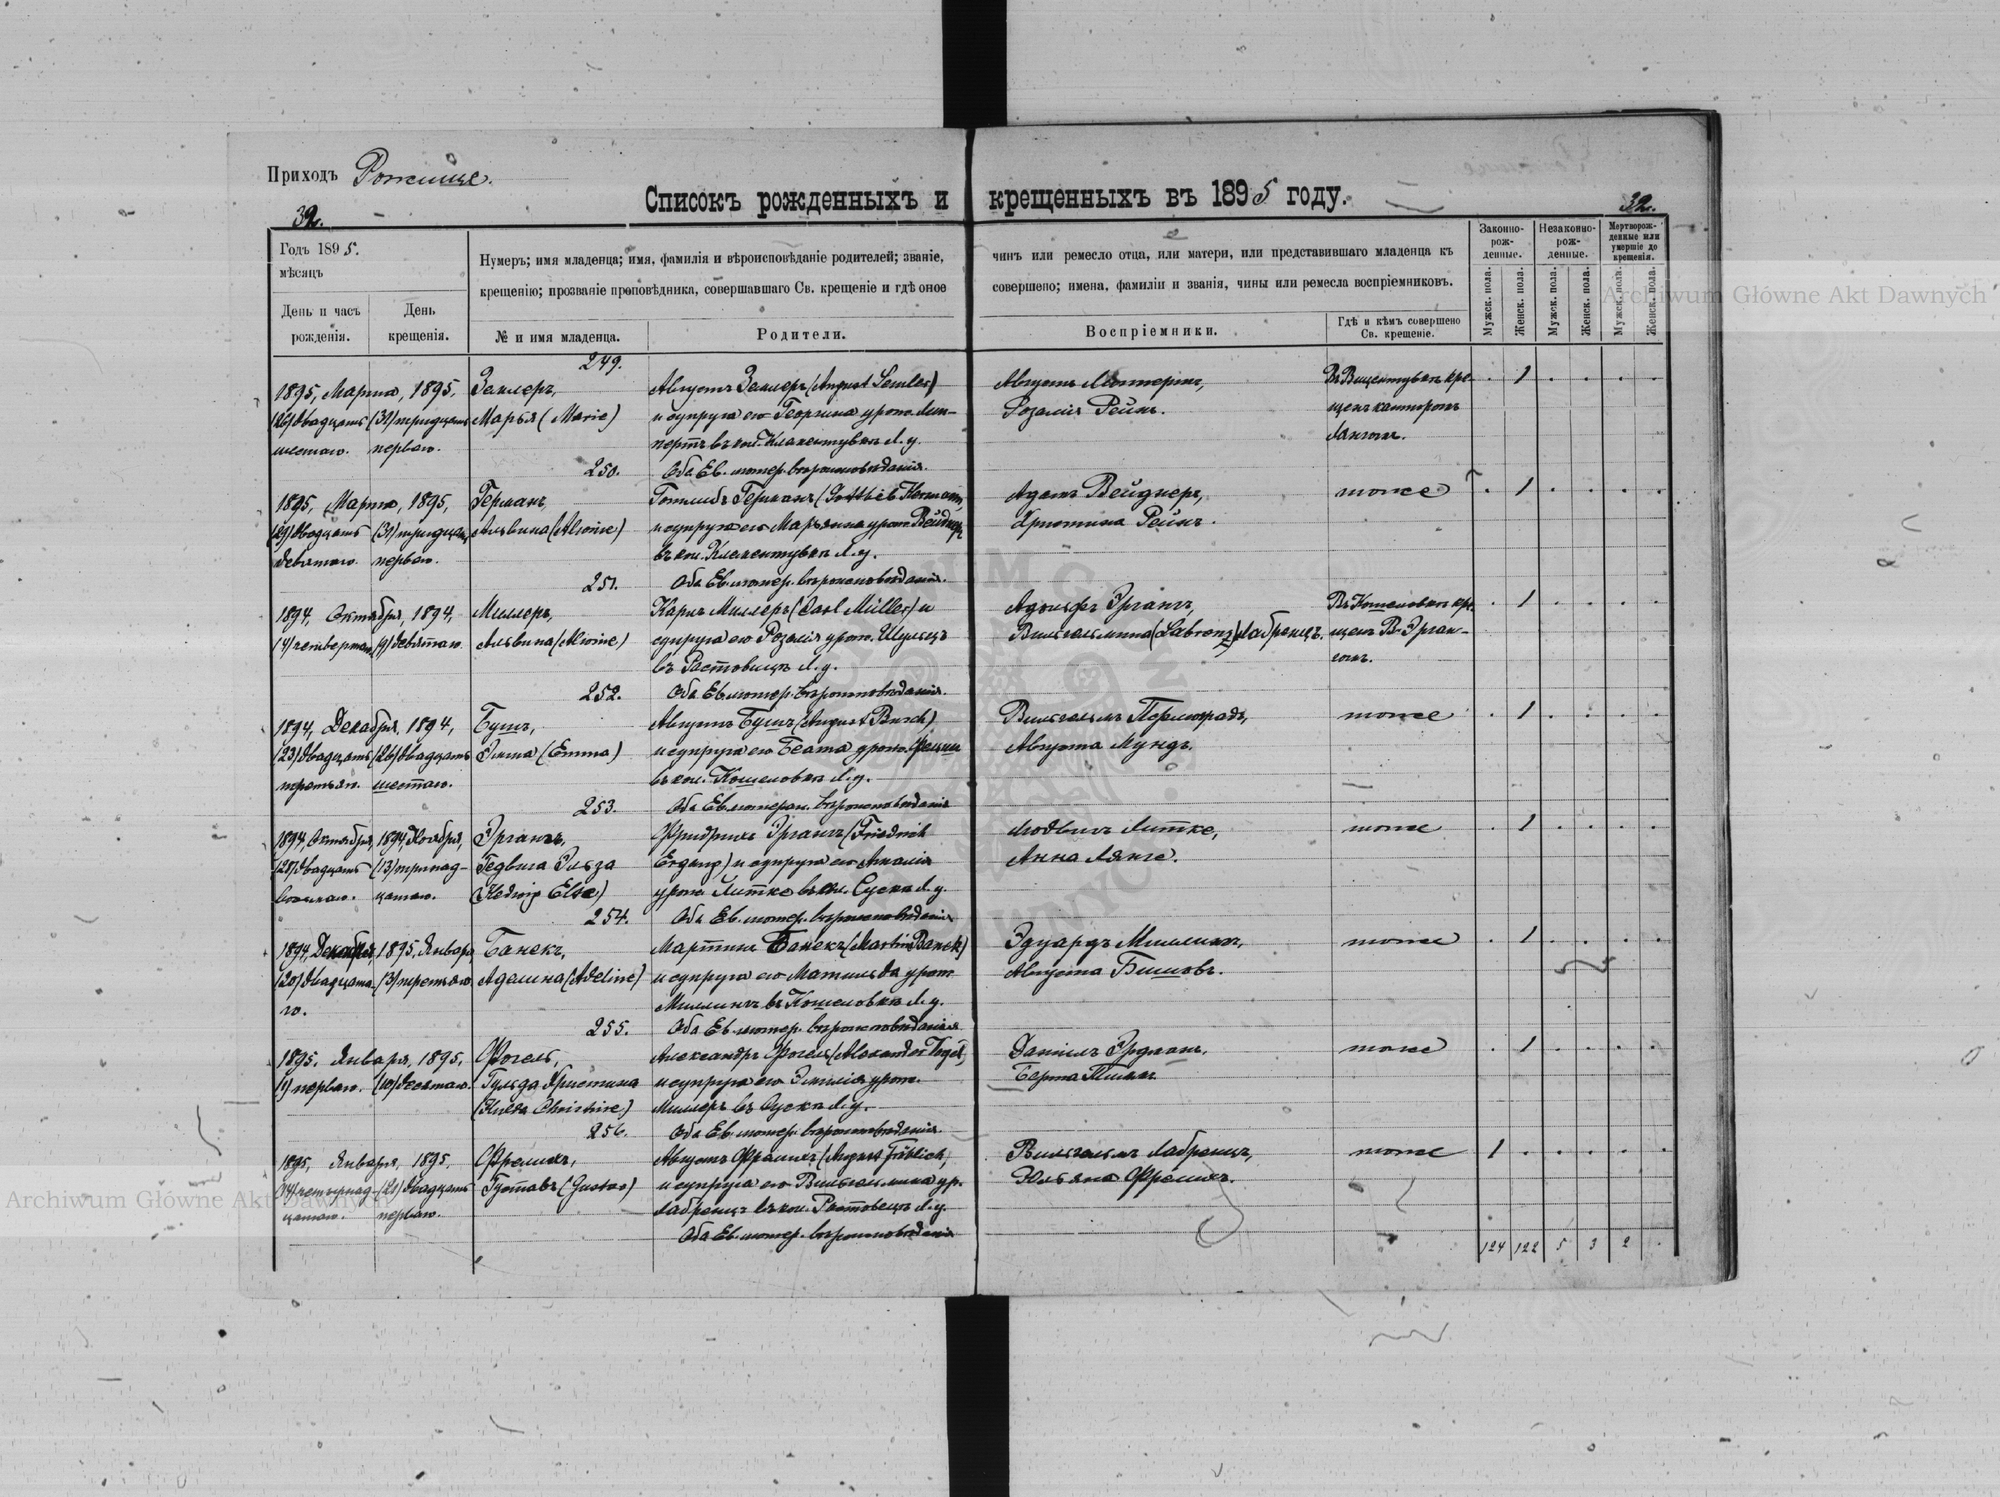 Приходъ Рожище.
Списокъ рожденныхъ и крещенныхъ въ 1895 году.
32. 32.
Годъ 1895.
мѣсяцъ
День и часъ рожденія.
День крещенія.
Нумеръ; имя младенца; имя, фамилія и вѣроисповѣданіе родителей; званіе, чинъ или ремесло отца, или матери, или представившаго младенца къ
крещенію; прозваніе проповѣдника, совершавшаго Св. крещеніе и гдѣ оное совершено; имена, фамиліи и званія, чины или ремесла воспріемниковъ.
№ и имя младенца.
Родители.
Воспріемники.
Гдѣ и кѣмъ совершено Св. крещеніе.
Законно-рож-денные.
Незаконно-рож-денные.
Мертворож-денные или умершіе до крещенія.
Мужск. пола. Женск. пола. Мужск. пола. Женск. пола. Мужск. пола. Женск. пола.
249.
1895, Марта, 1895, Землеръ, Августъ Землеръ (August Semler) Августъ . 1 . . . .
(26) двадцать (31) тридцать Марья (Marie) и супруга его Георгина урож. Розалія Рейнъ. щенъ канторомъ
шестаго. перваго. въ кол. Климентувка Л. у. Лангомъ.
250. Оба Ев. лютер. вѣроисповѣданія.
1895, Марта, 1895, Германъ, Готлибъ Германъ (Gottlieb Hermann) Адамъ Вейднеръ, тоже . 1 . . . .
(29) двадцать (31) тридцать Альвина (Alwine) и супруга его Марьянна урож. Вейднеръ Христина Рейнъ.
девятаго. перваго. въ кол. Климентувка Л. у.
251. Оба Ев. лютер. вѣроисповѣданія.
1894, Октября, 1894, Миллеръ, Карлъ Миллеръ (Carl Müller) и Адольфъ Эргангъ, Въ Кошеловкѣ кре- . 1 . . . .
(4) четвертаго. (9) девятаго. Альвина (Alwine) супруга его Розалія урож. Шульцъ Вильгельмина (Labrenz) Лабренцъ. щенъ В. Эрган-
въ Растовецъ Л. у. гомъ.
252. Оба Ев. лютер. вѣроисповѣданія.
1894, Декабря, 1894, Бушъ, Августъ Бушъ (August Busch) Вильгельмъ тоже . 1 . . . .
(23) двадцать (26) двадцать Эмма (Emma) и супруга его Беата урож. Августа Мундъ.
третьяго. шестаго. въ кол. Кошеловка Л. у.
253. Оба Ев. лютеран. вѣроисповѣданія
1894, Октября, 1894, Ноября, Эргангъ, Фридрихъ Эргангъ (Friedrich Людвигъ Литке, тоже . 1 . . . .
(28) двадцать (13) тринад- Гедвига Эльза Ergang) и супруга его Амалія Анна Лянге.
восьмаго. цатаго. (Hedwig Else) урож. Литке въ кол. Суска Л. у.
254. Оба Ев. лютер. вѣроисповѣданія
1894, Декабря, 1895, Января Банекъ, Мартинъ Банекъ (Martin Banek) Эдуардъ тоже . 1 . . . .
(20) двадцата- (3) третьяго. Аделина (Adeline) и супруга его Матильда урож. Августа
го. въ Кошеловка Л. у.
255. Оба Ев. лютер. вѣроисповѣданія
1895, Января, 1895, Фогель, Александръ Фогель (Alexander Vogel) Даніилъ тоже . 1 . . . .
(1) перваго. (10) десятаго. Гульда Христина и супруга его Эмилія урож. Берта
(Hulda Christine) Миллеръ въ Суска Л. у.
256. Оба Ев. лютер. вѣроисповѣданія.
1895, Января, 1895, Фрелихъ, Августъ Фрелихъ (August Fröhlich) Вильгельмъ Лабренцъ, тоже 1 . . . . .
(14) четырнад- (21) двадцать Густавъ (Gustav) и супруга его Вильгельмина ур. Юльяна Фрелихъ.
цатаго. перваго. Лабренцъ въ кол. Растовецъ Л. у.
Оба Ев. лютер. вѣроисповѣданія
124 122 5 3 2 .
Archiwum Główne Akt Dawnych
Archiwum Główne Akt Dawnych